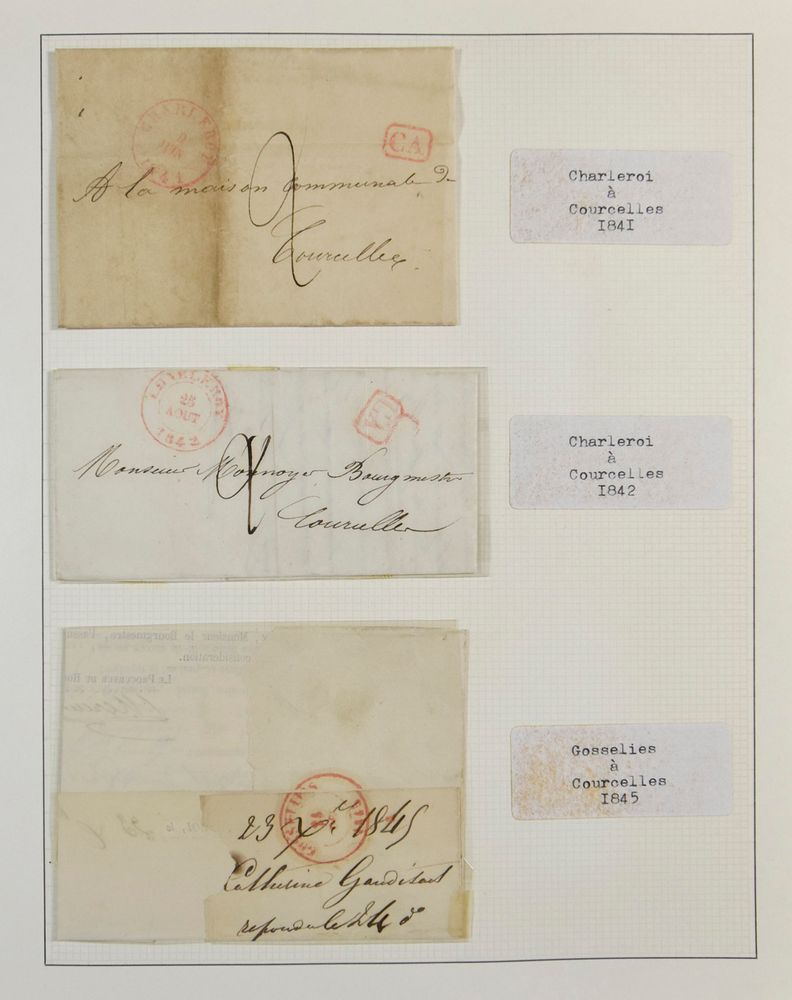 CHARLEROY
9
JUIN
1841
CA
A la maison Communale de
2
Courcelles.
Charleroi
à
Courcelles
I84I
CHARLEROY
28
AOUT
1842
CA
2
Monsieur Monnoyer Bourgmestre
Courcelles
Charleroi
à
Courcelles
I842
Monsieur le Bourgmestre,
consideration.
LE PROCUREUR DU ROI
GOSSELIES
23 Xbre 1845
Catherine Gauditart
repondu le 24 do
Gosselies
à
Courcelles
I845